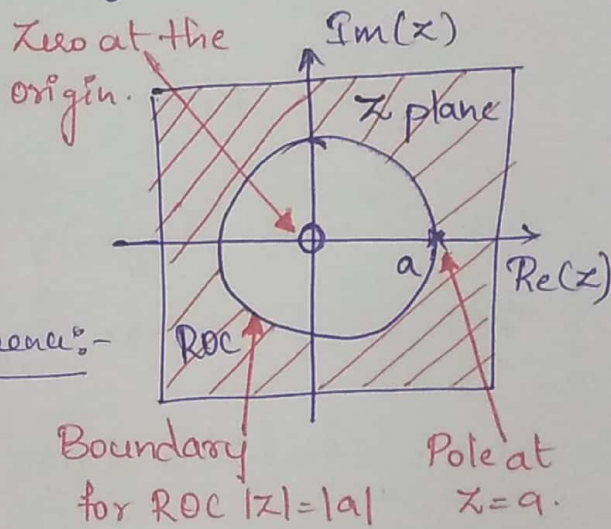 Zero at the
origin.
Im(z)
Z plane
a
Re(z)
ROC
Boundary
for ROC |z|=|a|
Pole at
z=a.